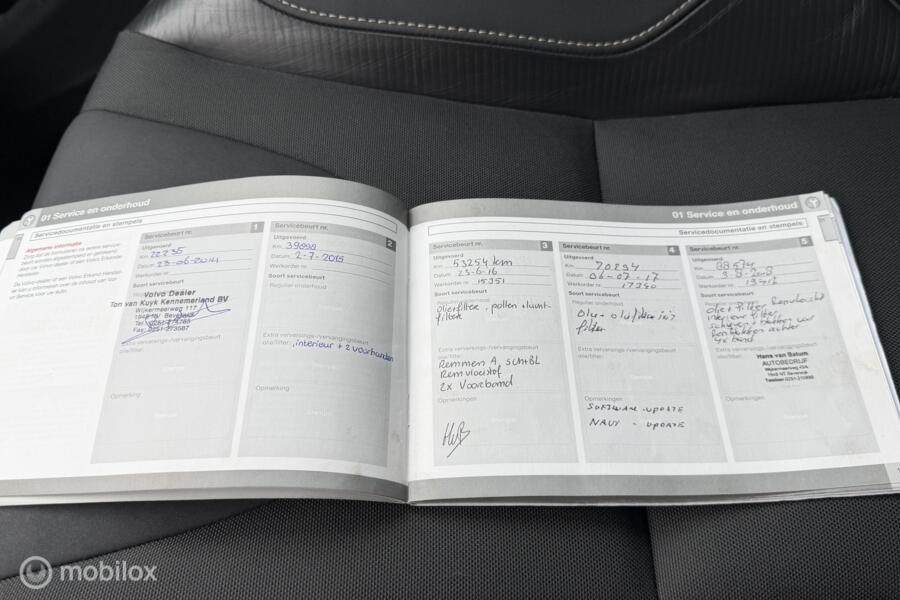 01 Service en onderhoud
Servicedocumentatie en stempels
Algemene informatie
Servicebeurt nr. 1
Uitgevoerd
Km 22235
Datum 23-06-2014
Werkorder nr.
Soort servicebeurt
Volvo Dealer
Ton van Kuyk Kennemerland BV
Wijkermeerweg 117
Extra verversings-/vervangingsbeurt
olie/filter:
Opmerking
Servicebeurt nr. 2
Uitgevoerd
Km 39098
Datum 2-7-2015
Werkorder nr.
Soort servicebeurt
Regulier onderhoud
Extra verversings-/vervangingsbeurt
olie/filter: interieur + 2 voorbanden
Opmerking
01 Service en onderhoud
Servicedocumentatie en stempels
Servicebeurt nr. 3
Uitgevoerd
Km 53254 km
Datum 23-6-16
Werkorder nr. 15351
Soort servicebeurt
Regulier onderhoud
oliefilter, pollen + lucht-
filter
Extra verversings-/vervangingsbeurt
olie/filter:
Remmen A, sch+BL
Remvloeistof
2x Voorband
Opmerkingen
Servicebeurt nr. 4
Uitgevoerd
Km 70294
Datum 06-07-17
Werkorder nr. 17340
Soort servicebeurt
Regulier onderhoud
filter
Extra verversings-/vervangingsbeurt
olie/filter:
Opmerkingen
SOFTWARE-UPDATE
NAVI - UPDATE
Servicebeurt nr. 5
Uitgevoerd
Km 88574
Datum
Werkorder nr.
Soort servicebeurt
olie + filter Remvloeistof
interieur filter,
4x band
Extra verversings-/vervangingsbeurt
olie/filter:
Hans van Batum
AUTOBEDRIJF
Wijkermeerweg 45A
Opmerkingen
mobilox